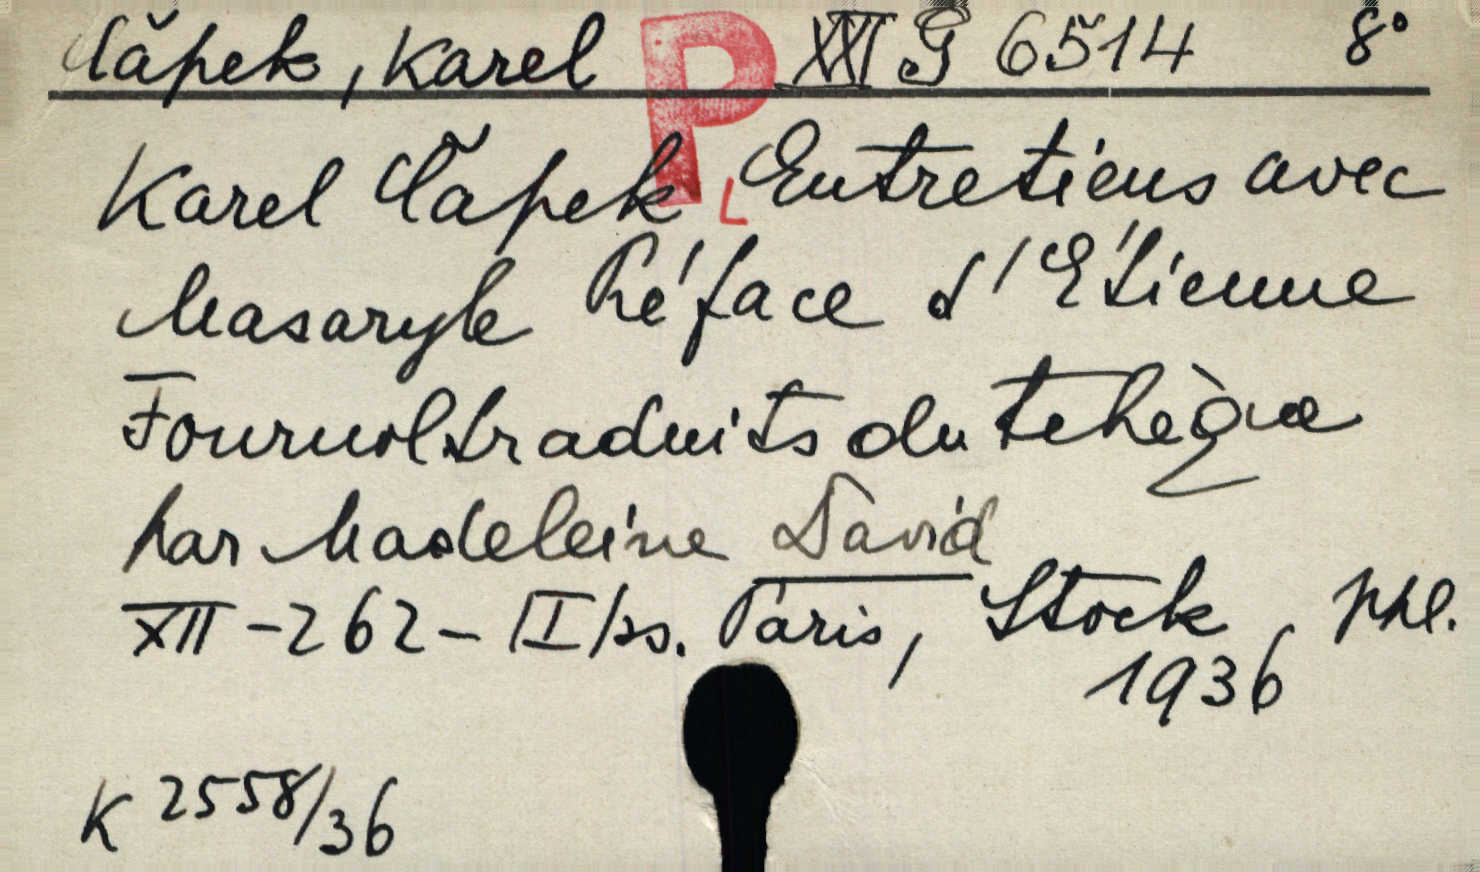 Čapek, Karel P XXI G 6514 8°
Karel Čapek L Entretiens avec
Masaryk Préface d'Étienne
Fournol traduits du tchèque
par Madeleine David
XII-262-|I|ss. Paris, Stock, ppl.
1936
K 2558/36